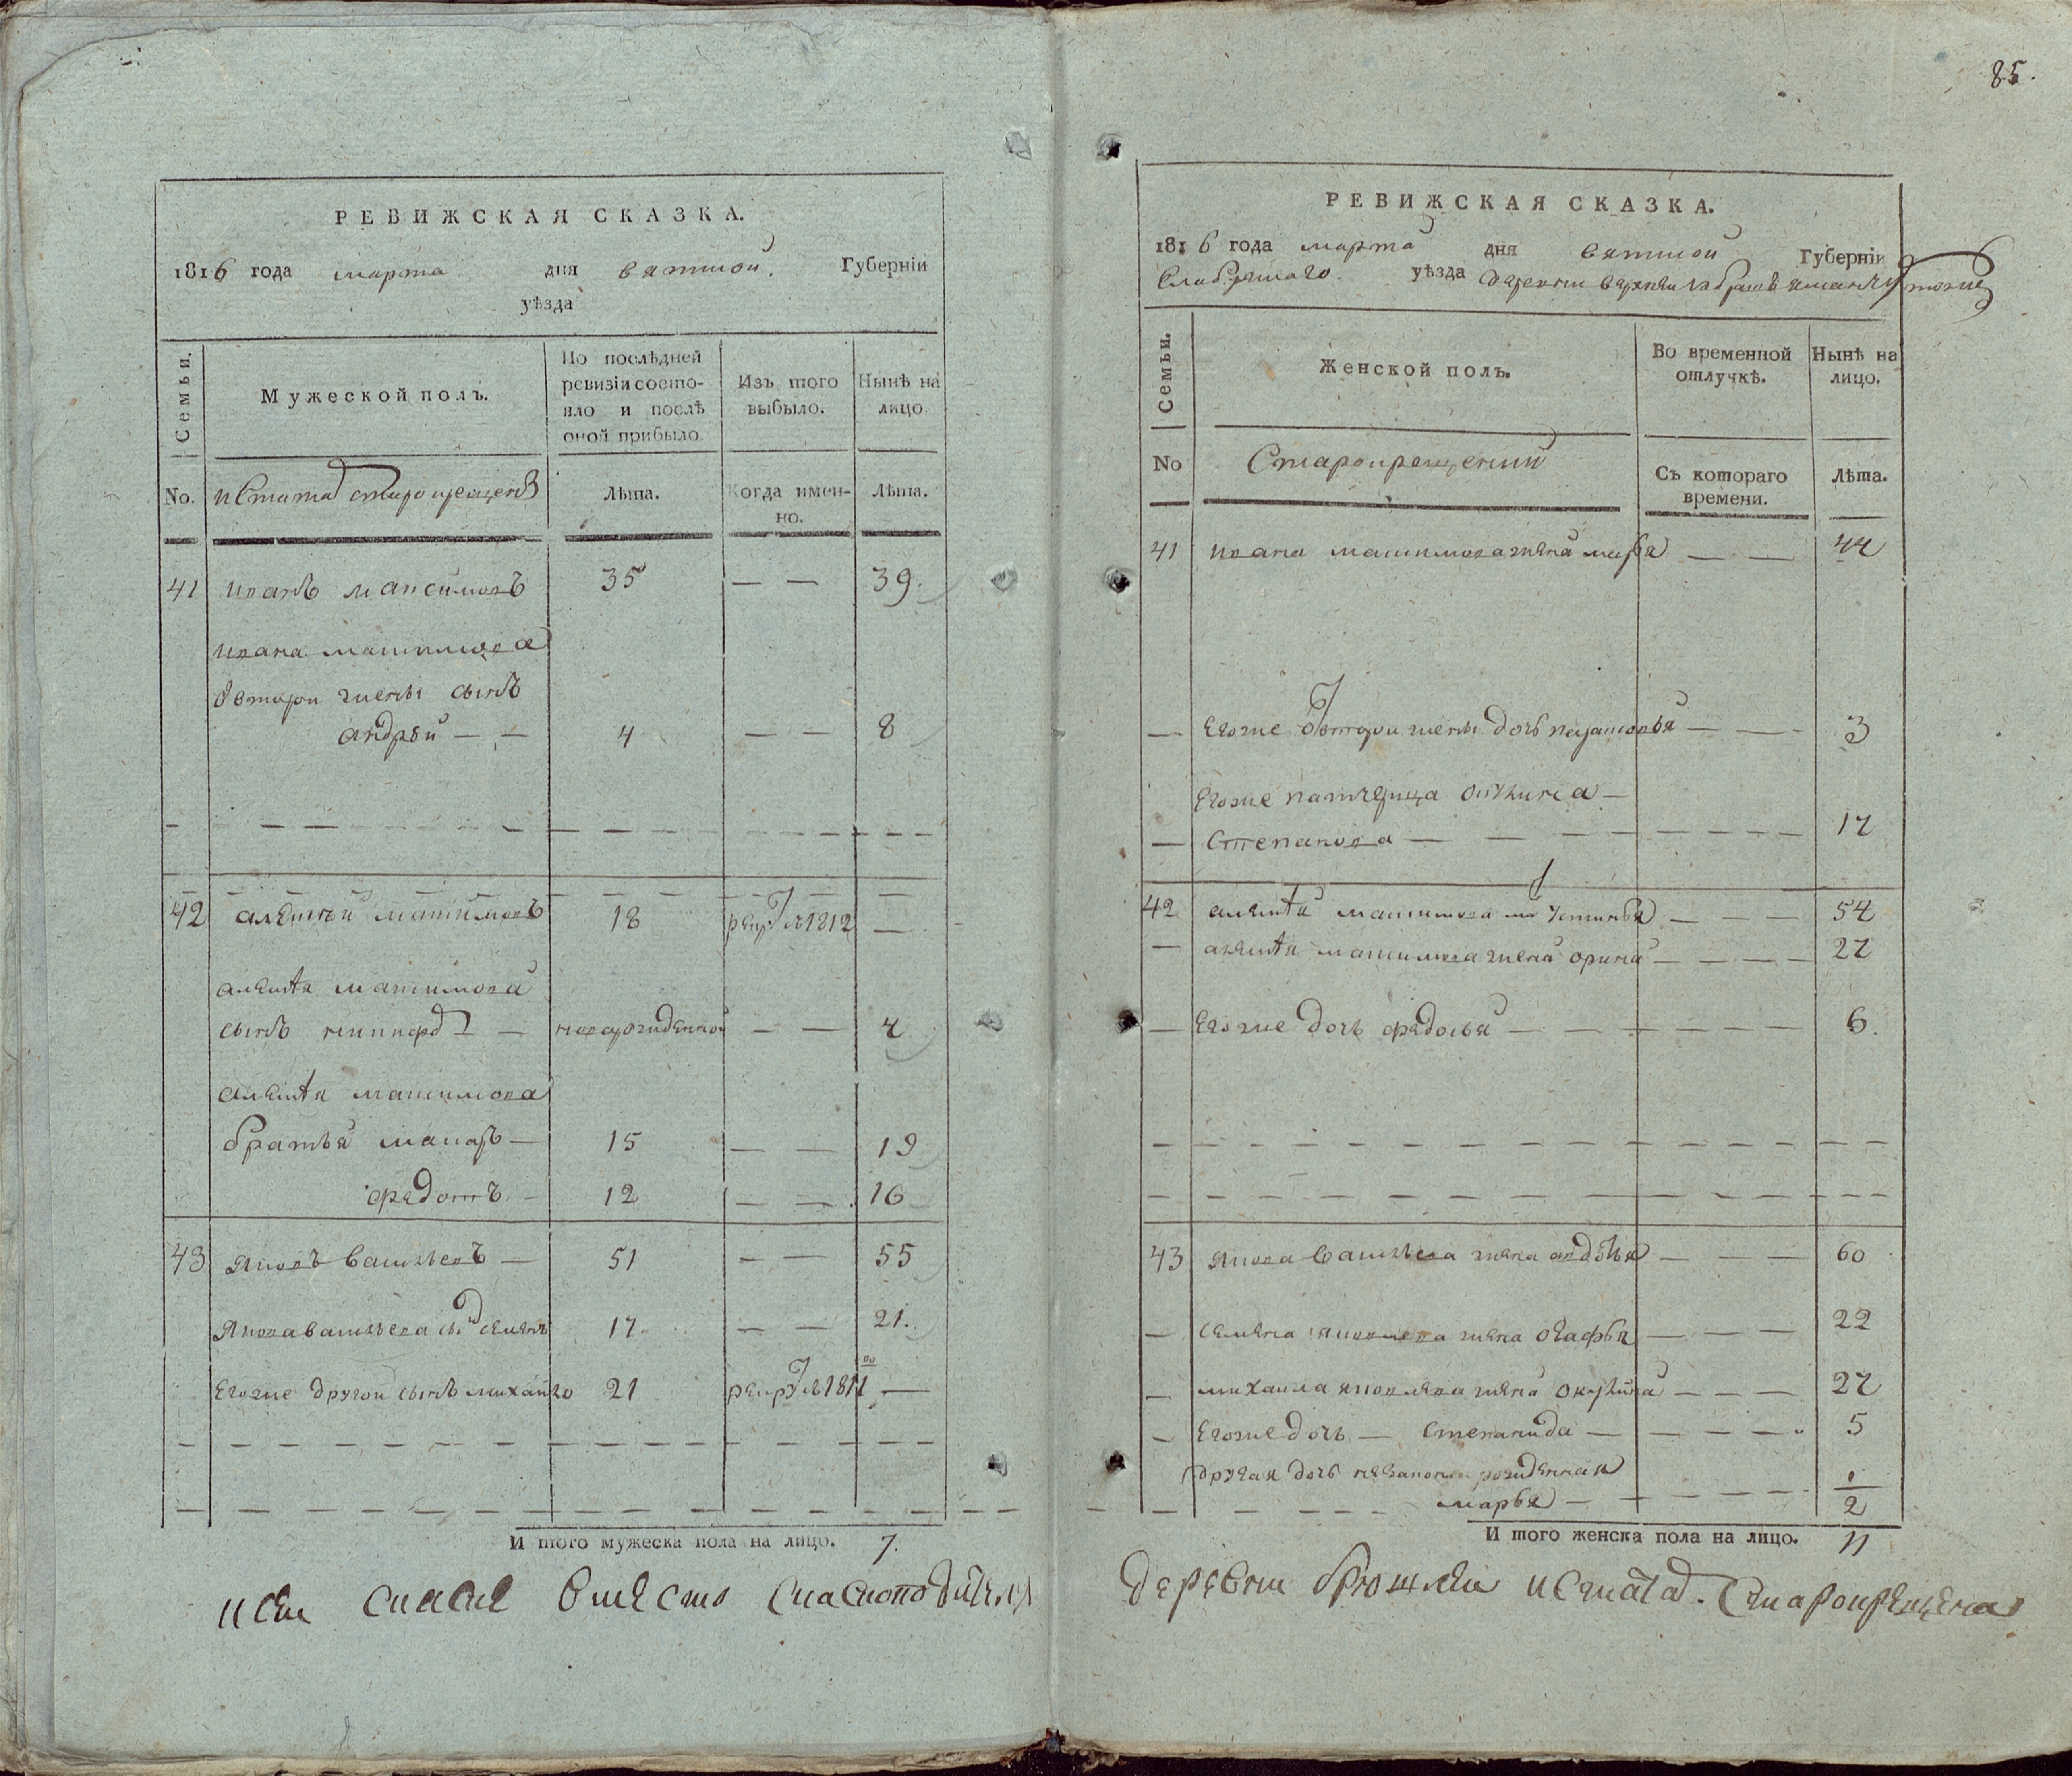 85.
РЕВИЖСКАЯ СКАЗКА.
1816 года марта дня вятской Губерніи
уѣзда
Семьи.
Мужеской полъ.
По послѣдней ревизіи состояло и послѣ оной прибыло
Изъ того выбыло.
Нынѣ на лицо.
No.
старокрещенъ
Лѣта.
Когда имен-
но.
Лѣта.
41 иванъ максимовъ 35 — — 39.
ивана максимова
второи жены сынъ
андрѣй — — 4 — — 8
42 алексѣй максимовъ 18 рекр 1812 —
алексѣя максимова
сынъ — новорожденной — — 4
алексѣя максимова
братья макаръ — 15 — — 19
федотъ — 12 — — 16
43 яковъ васильевъ — 51 — — 55
якова васильева сы семенъ 17. — — 21.
егоже другои сынъ михаило 21 рекр 1811 —
И того мужеска пола на лицо. 7.
РЕВИЖСКАЯ СКАЗКА.
1816 года марта дня вятской Губерніи
уѣзда деревни
Семьи.
Женской полъ.
Во временной отлучкѣ.
Нынѣ на лицо.
No
Старокрещений
Съ котораго времени.
Лѣта.
41 ивана максимова жена марья — — 44
— егоже второи жены дочь — — 3
егоже патчерица акулина —
— Степанова — — — 17
42 алексѣя максимова ма устинья — — — 54
— алексѣя максимова жена орина — — — 27
— егоже дочь федосья — — — 6.
43 якова васильева жена авдотья — — — 60
— семена яковлева жена огафья — — — 22
— михаила яковлева жена окулина — — — 27
— егоже дочь — степанида — — — 5
другая дочь рожденная
марья — — — 1/2
И того женска пола на лицо. 11
вместо
деревни старокрещена